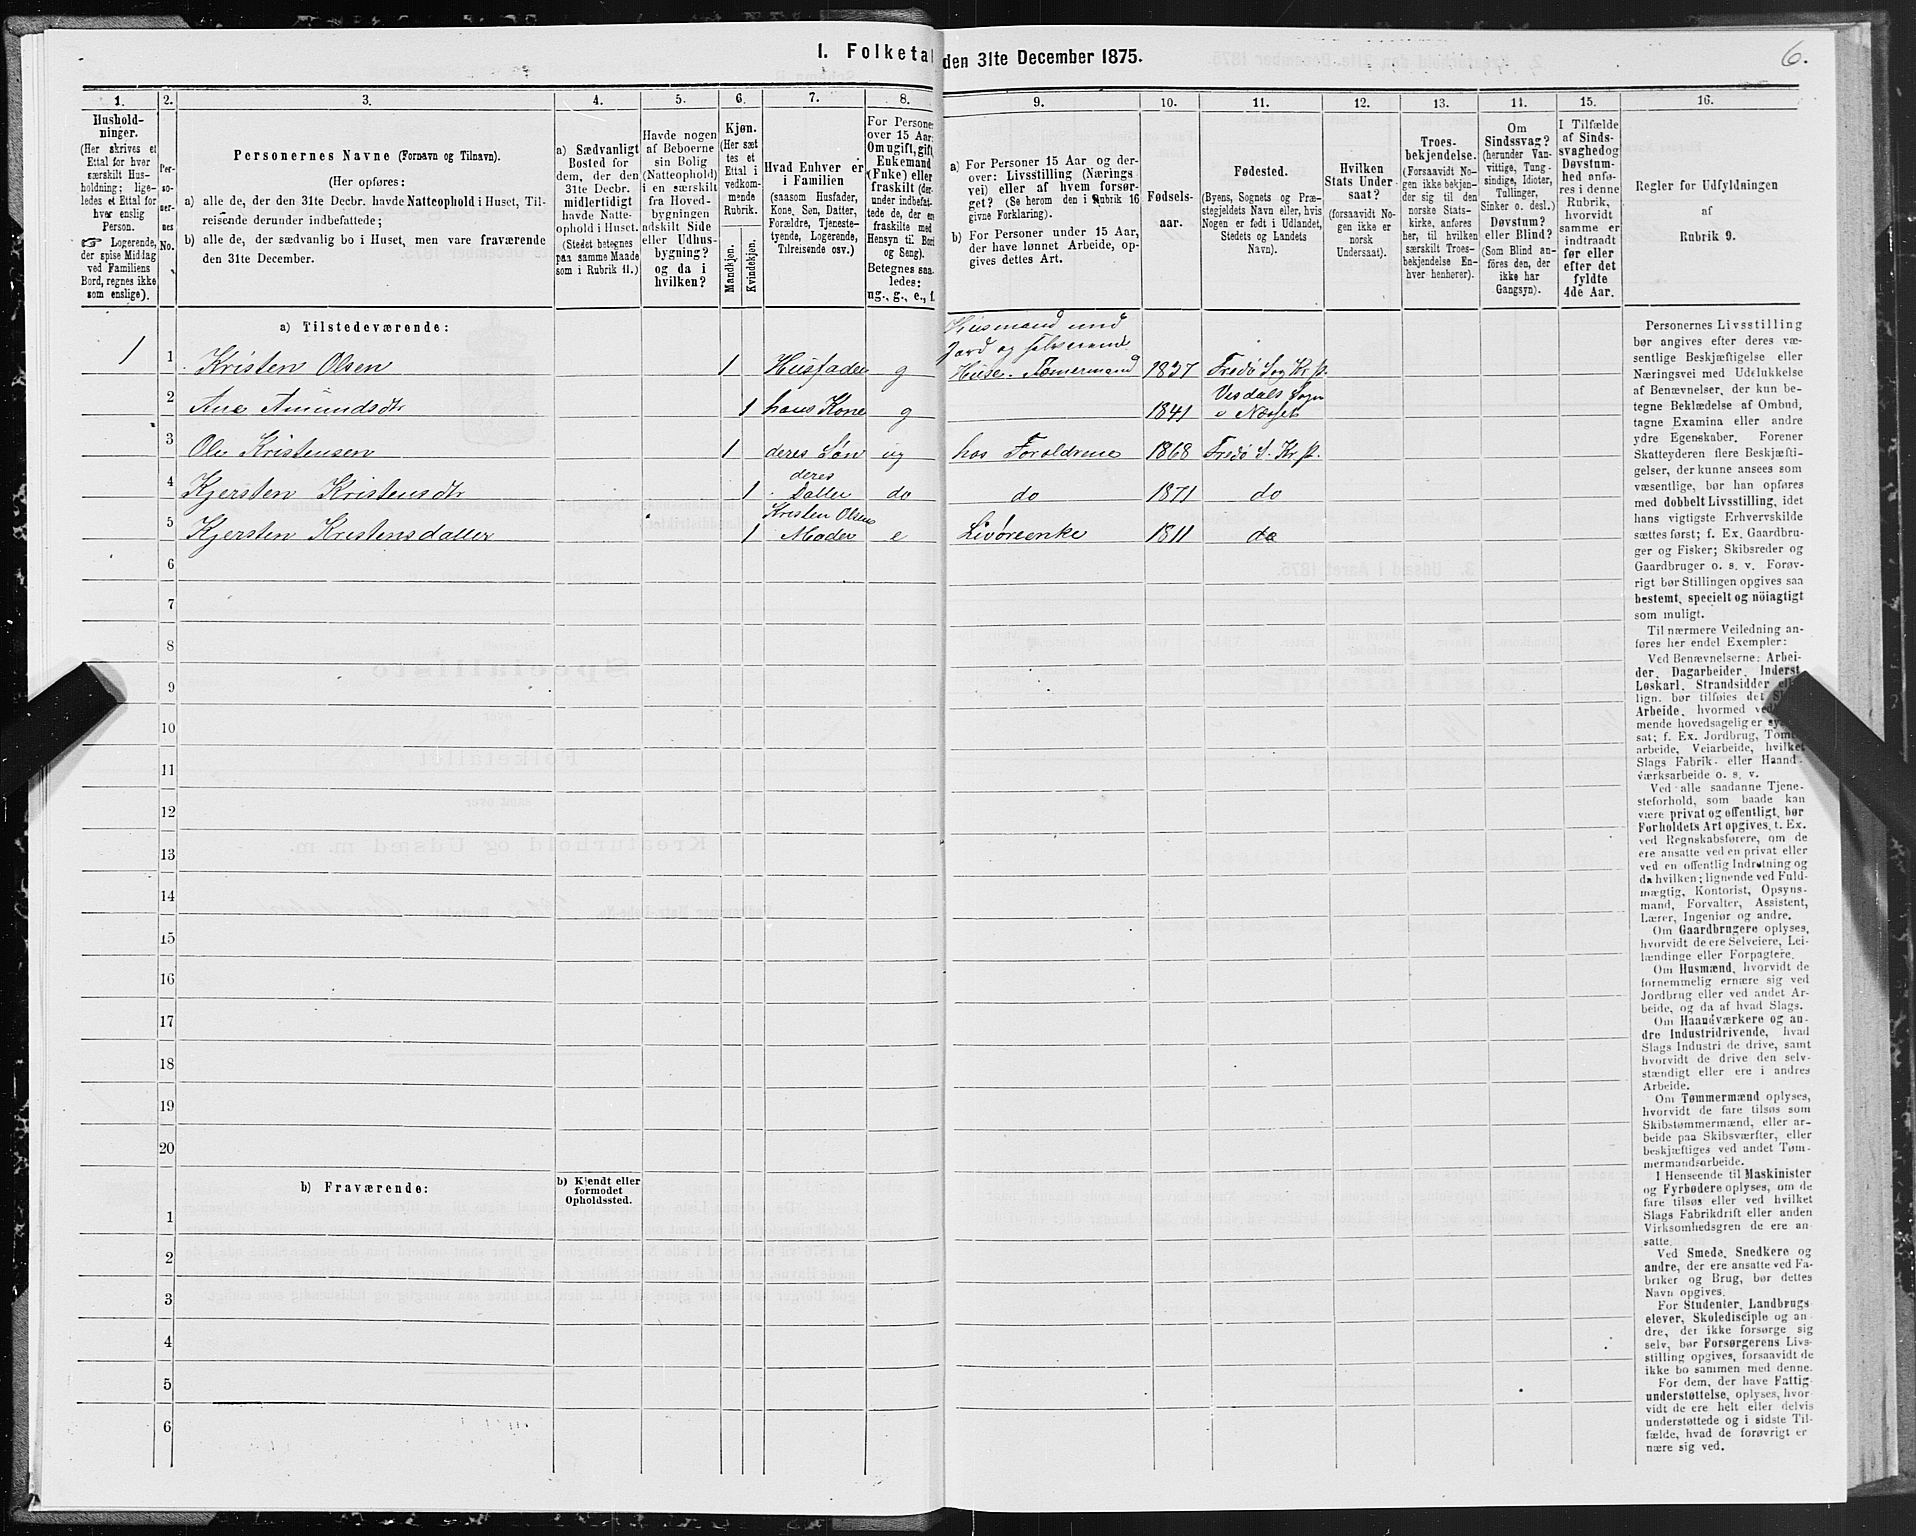 I. Folketal den 31te December 1875.
6.
1.
Hushold-
ninger.
(Her skrives et
Ettal for hver
særskilt Hus-
holdning; lige-
ledes et Ettal for
hver enslig
Person.
☞ Logerende,
der spise Middag
ved Familiens
Bord, regnes ikke
som enslige).
2.
Per-
so-
ner-
nes
No.
3.
Personernes Navne (Fornavn og Tilnavn).
(Her opføres:
a) alle de, der den 31te Decbr. havde Natteophold i Huset, Til-
reisende derunder indbefattede;
b) alle de, der sædvanlig bo i Huset, men vare fraværende
den 31te December.
4.
a) Sædvanligt
Bosted for
dem, der den
31te Decbr.
midlertidigt
havde Natte-
ophold i Huset.
(Stedet betegnes
paa samme Maade
som i Rubrik 11.)
5.
Havde nogen
af Beboerne
sin Bolig
(Natteophold)
i en særskilt
fra Hoved-
bygningen
adskilt Side
eller Udhus-
bygning?
og da i
hvilken?
6.
Kjøn.
(Her sæt
tes et
Ettal i
vedkom-
mende
Rubrik.
Mandkjøn.
Kvindekjøn.
7.
Hvad Enhver er
i Familien
(saasom Husfader,
Kone, Søn, Datter,
Forældre, Tjeneste-
tyende, Logerende,
Tilreisende osv.)
8.
For Persone
over 15 Aar:
Om ugift, gift
Enkemand
(Enke) eller
fraskilt (der-
under indbefat-
tede de, der er
fraskilte med
Hensyn til Bord
og Seng).
Betegnes saa-
ledes:
ug., g., e., f.
9.
a) For Personer 15 Aar og der-
over: Livsstilling (Nærings
vei) eller af hvem forsør-
get? (Se herom den i Rubrik 16
givne Forklaring).
b) For Personer under 15 Aar,
der have lønnet Arbeide, op-
gives dettes Art.
10.
Fødsels-
aar.
11.
Fødested.
(Byens, Sognets og Præ-
stegjeldets Navn eller, hvis
Nogen er født i Udlandet,
Stedets og Landets
Navn).
12.
Hvilken
Stats Under
saat?
(forsaavidt No-
gen ikke er
norsk
Undersaat).
13.
Troes-
bekjendelse.
(Forsaavidt No-
gen ikke bekjen-
der sig til den
norske Stats-
kirke, anføres
her, til hvilken
særskilt Troes-
bekjendelse En-
hver henhører).
14.
Om
Sindssvag?
(herunder Van-
vittige, Tung-
sindige, Idioter,
Tullinger,
Sinker o. desl.)
Døvstum?
eller Blind?
(Som Blind an-
føres den, der
ikke har
Gangsyn).
15.
I Tilfælde
af Sinds-
svaghed og
Døvstum-
hed anfø-
res i denne
Rubrik,
hvorvidt
samme er
indtraadt
før eller
efter det
fyldte
4de Aar.
16.
Regler for Udfyldningen
af
Rubrik 9.
a) Tilstedeværende:
1
1 Kristen Olsen 1 Husfader g Husmand med Jord og selveiende Huse. Tømmermand 1837 Fredø Sog Kr. p.
2 Ane Amundsdtr 1 hans Kone g 1841 Visdals Sogn o Næsset
3 Ole Kristensen 1 deres Søn ug hos Foroldrene 1868 Fredø S. Kr. p.
4 Kjersten Kristensdtr 1 deres Datter do do 1871 do
5 Kjersten Kristensdatter 1 Kristen Olsens Moder e Livøreenke 1811 do
6
7
8
9
10
11
12
13
14
15
16
17
18
19
20
b) Fraværende:
b) Kjendt eller
formodet
Opholdssted.
1
2
3
4
5
6
Personernes Livsstilling
bør angives efter deres væ-
sentlige Beskjæftigelse eller
Næringsvei med Udelukkelse
af Benævnelser, der kun be-
tegne Beklædelse af Ombud,
tagne Examina eller andre
ydre Egenskaber. Forener
Skatteyderen flere Beskjæfti-
gelser, der kunne ansees som
væsentlige, bør han opføres
med dobbelt Livsstilling, idet
hans vigtigste Erhvervskilde
sættes først; f. Ex. Gaardbru-
ger og Fisker; Skibsreder og
Gaardbruger o. s. v. Forøv-
rigt bør Stillingen opgives saa
bestemt, specielt og nöiagtigt
som muligt.
Til nærmere Veiledning an-
føres her endel Exempler:
Ved Benævnelserne: Arbei-
der, Dagarbeider, Inderst,
Løskarl, Strandsidder eller
lign. bør tilføies det Slags
Arbeide, hvormed ved
mende hovedsagelig er sy
sat; f. Ex. Jordbrug, Tomt
arbeide, Veiarbeide, hvilket
Slags Fabrik- eller Haand-
værksarbeide o. s. v.
Ved alle saadanne Tjene-
steforhold, som baade kan
være privat og offentligt, bør
Forholdets Art opgives, t. Ex.
ved Regnskabsførere, om de
ere ansatte ved en privat eller
ved en offentlig Indretning og
da hvilken; lignende ved Fuld-
mægtig, Kontorist, Opsyns-
mand, Forvalter, Assistent,
Lærer, Ingeniør og andre.
Om Gaardbrugere oplyses,
hvorvidt de ere Selveiere, Lei-
lændinge eller Forpagtere.
Om Husmænd, hvorvidt de
fornemmelig ernære sig ved
Jordbrug eller ved andet Ar-
beide, og da af hvad Slags.
Om Haandværkere og an-
dre Industridrivende, hvad
Slags Industri de drive, samt
hvorvidt de drive den selv-
stændigt eller ere i andres
Arbeide.
Om Tømmermænd oplyses,
hvorvidt de fare tilsøs som
Skibstømmermænd, eller ar-
beide paa Skibsværfter, eller
beskjæftiges ved andet Tøm-
mermandsarbeide.
I Henseende til Maskinister
og Fyrbødere oplyses, om de
fare tilsøs eller ved hvilket
Slags Fabrikdrift eller anden
Virksomhedsgren de ere an-
satte.
Ved Smede, Snedkere og
andre, der ere ansatte ved Fa-
briker og Brug, bør dettes
Navn opgives.
For Studenter, Landbrugs
elever, Skoledisciple og an-
dre, der ikke forsørge sig
selv, bør Forsørgerens Livs-
stilling opgives, forsaavidt de
ikke bo sammen med denne.
For dem, der have Fattig-
understøttelse, oplyses, hvor-
vidt de ere helt eller delvis
understøttede og i sidste Til-
fælde, hvad de forøvrigt er
nære sig ved.